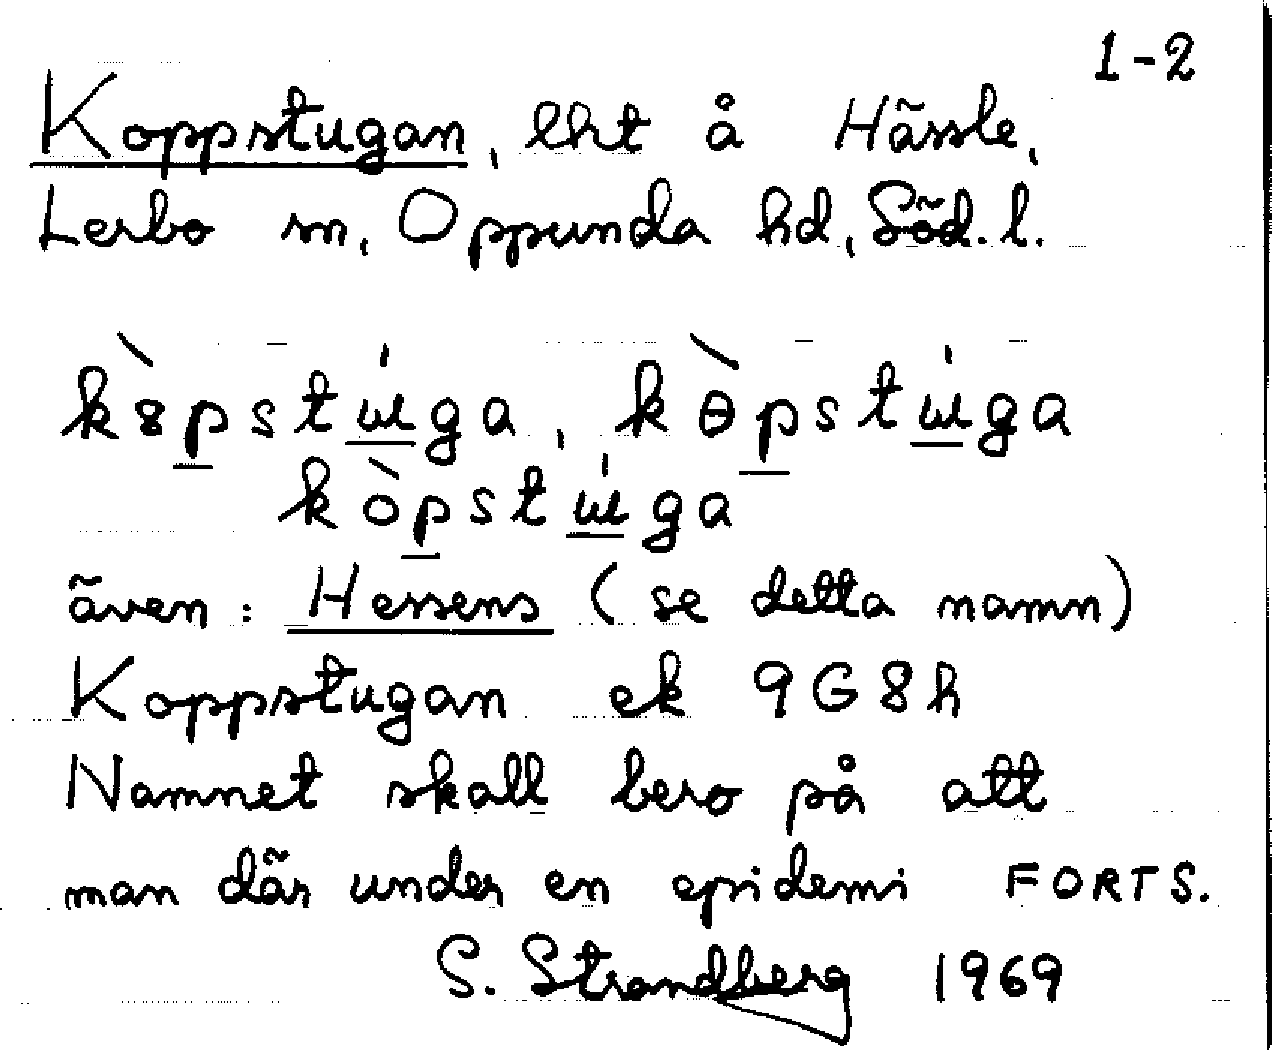 1-2
Koppstugan, lht å Hässle,
Lerbo sn, Oppunda hd, Söd. l.
kȣ̀pstɯ́ga, kɵ̀pstɯ́ga
kòpstɯ́ga
även: Hessens (se detta namn)
Koppstugan ek 9G8h
Namnet skall bero på att
man där under en epidemi FORTS.
S. Strandberg 1969